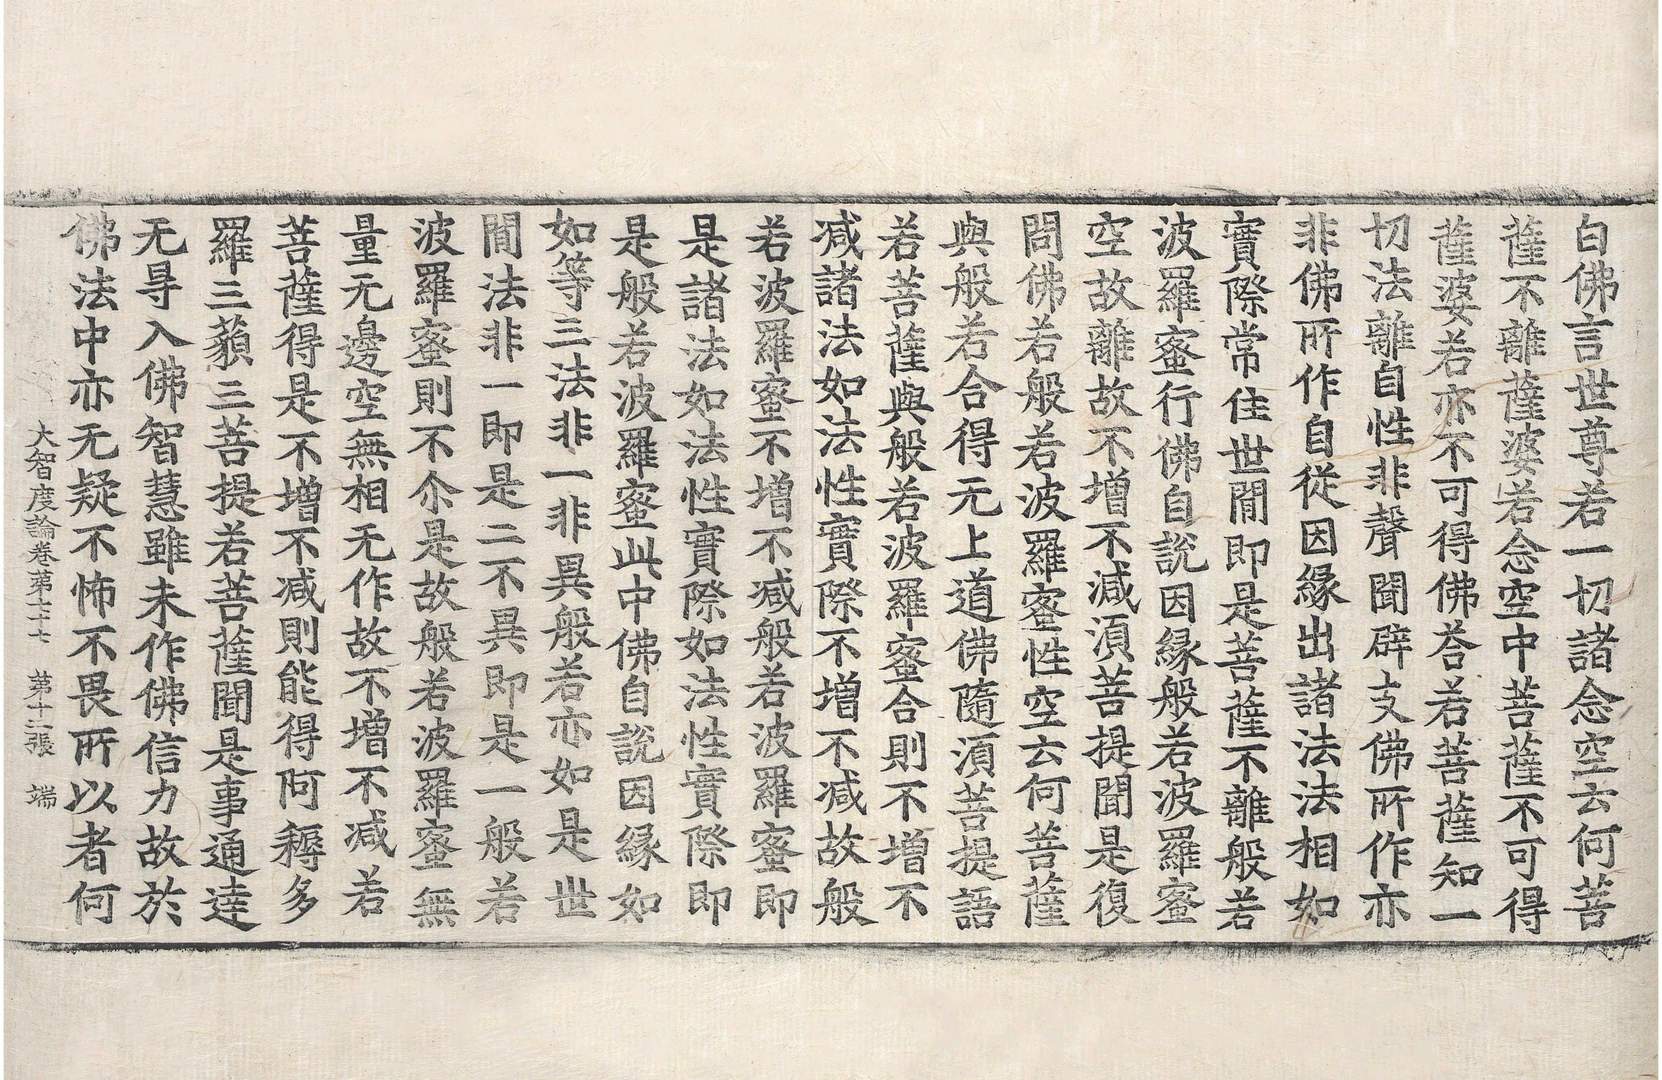 白佛言世尊若一切諸念空云何菩
薩不離薩婆若念空中菩薩不可得
薩婆若亦不可得佛荅若菩薩知一
切法離自性非聲聞辟支佛所作亦
非佛所作自從因緣出諸法法相如
實際常住世間即是菩薩不離般若
波羅蜜行佛自說因緣般若波羅蜜
空故離故不增不減湏菩提聞是復
問佛若般若波羅蜜性空云何菩薩
與般若合得无上道佛隨湏菩提語
若菩薩與般若波羅蜜合則不增不
減諸法如法性實際不增不減故般
若波羅蜜不增不減般若波羅蜜即
是諸法如法性實際如法性實際即
是般若波羅蜜此中佛自說因緣如
如等三法非一非異般若亦如是世
間法非一即是二不異即是一般若
波羅蜜則不尒是故般若波羅蜜無
量无邊空無相无作故不增不減若
菩薩得是不增不減則能得阿耨多
羅三藐三菩提若菩薩聞是事通達
无㝵入佛智慧雖未作佛信力故於
佛法中亦无疑不怖不畏所以者何
大智度論卷第七十七 第十二張 端